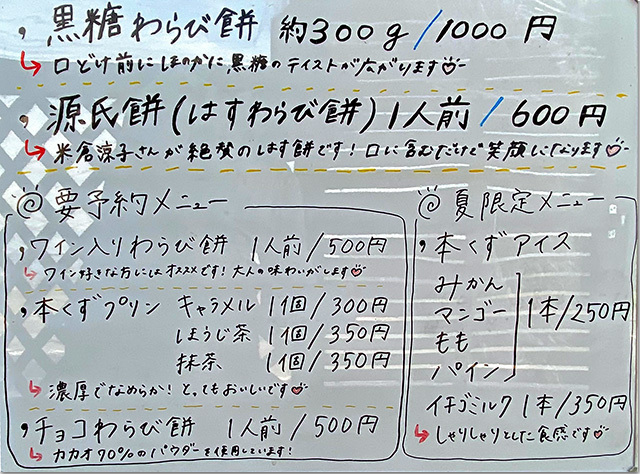 , 黒糖わらび餅 約300g/1000円
↳ 口どけ前にほのかに黒糖のテイストが広がります♡
, 源氏餅(はすわらび餅)1人前/600円
↳ 米倉涼子さんが絶賛のはす餅です!口に含むだけで笑顔になります♡
要予約メニュー
, ワイン入りわらび餅 1人前/500円
↳ ワイン好きな方にはオススメです!大人の味わいがします♡
, 本くずプリン キャラメル 1個/300円
ほうじ茶 1個/350円
抹茶 1個/350円
↳ 濃厚でなめらか!とってもおいしいです♡
, チョコわらび餅 1人前/500円
↳ カカオ70%のパウダーを使用しています!
夏限定メニュー
, 本くずアイス
みかん
マンゴー
もも
パイン
1本/250円
イチゴミルク 1本/350円
↳ しゃりしゃりとした食感です♡